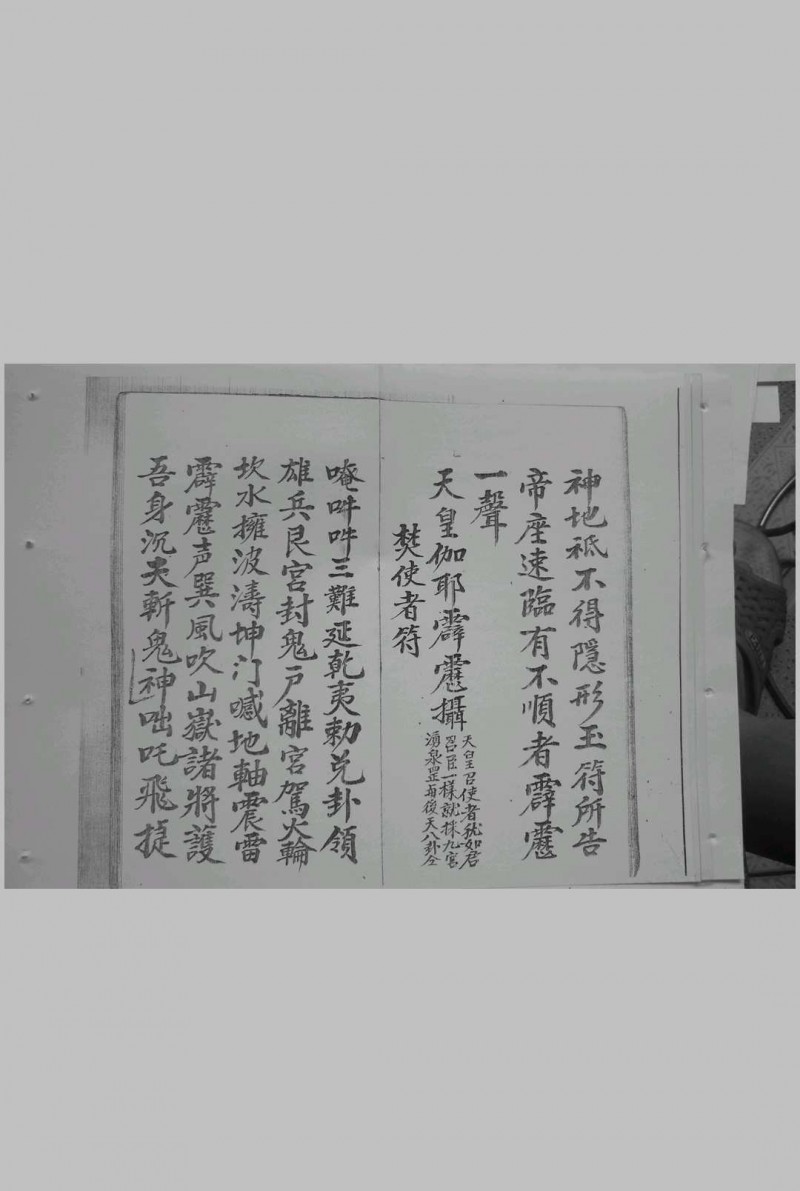 神地祇不得隱形玉符所告
帝座速臨有不順者霹靂
一聲
天皇伽耶霹靂攝
天皇召使者犹如君
召臣一樣就採九宮
湧泉罡再後天八卦全
焚使者符
唵吽吽三難延乾夷勅兌卦領
雄兵艮宮封鬼戸離宮駕火輪
坎水擁波濤坤汀喊地軸震雷
霹靂声巽風吹山嶽諸將護
吾身沉天斬鬼神咄吒飛捷